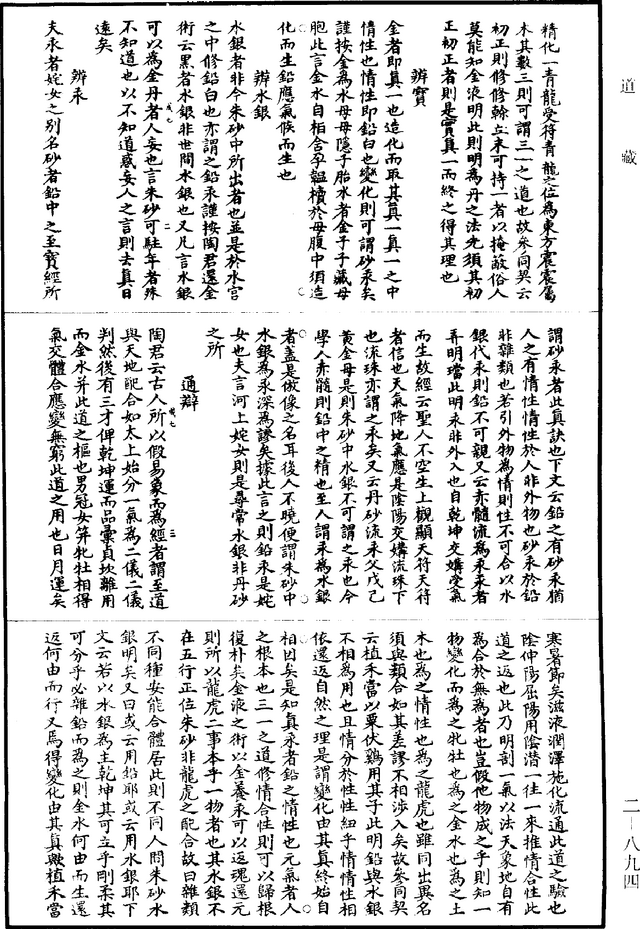 道藏
精化一青龍受符青龍之位為東方震震屬
木其數三則可謂三一之道也故參同契云
初正則修修榦立末可持一者以掩蔽俗人
莫能知金液明此則明為丹之法先須其初
正初正者則是寶真一而終之得其理也
辨寶
金者即真一也造化而取其真一真一之中
情性也情性即鉛白也變化則可謂砂汞矣
謹按金為水母母隱子胎水者金子子藏母
胞此言金水自相含孕韞櫝於母腹中須造
化而生鉛應氣候而生也
辨水銀
水銀者非今朱砂中所出者也並是於水宮
之中修鉛白也亦謂之鉛汞謹按陶君還金
術云黑者水銀非世間水銀也又凡言水銀
可以為金丹者人妄也言朱砂可駐年者殊
不知道也以不知道惑妄人之言則去真日
遠矣
辨汞
夫汞者姹女之別名砂者鉛中之至寶經所
謂砂汞者此真訣也下文云鉛之有砂汞猶
人之有情性情性於人非外物也砂汞於鉛
非雜類也若引外物為情則性不可合以水
銀代汞則鉛不可親又云赤髓流為汞汞者
弄明璫此明汞非外入也自乾坤交媾受氣
而生故經云聖人不空生上觀顯天符天符
者信也天氣降地氣應是陰陽交媾流珠下
也流珠亦謂之汞矣又云丹砂流汞父戊己
黃金母是則朱砂中水銀不可謂之汞也今
學人赤髓則鉛中之精也至人謂汞為水銀
者蓋是倣像之名耳後人不曉便謂朱砂中
水銀為汞深為謬矣據此言之則鉛汞是姹
女也夫言河上姹女則是尋常水銀非丹砂
之所
通辯
陶君云古人所以假易象而為經者謂至道
與天地配合如太上始分一氣為二儀二儀
判然後有三才俾乾坤運而品彙貞坎離用
而金水并此道之樞也男冠女笄牝牡相得
氣交體合應變無窮此道之用也日月運矣
寒暑節矣滋液潤澤施化流通此道之驗也
陰伸陽屈陽用陰潛一往一來推情合性此
道之返也此乃明剖一氣以法天象地自有
為合於無為者也豈假他物成之乎則知一
物變化而為之牝牡也為之金水也為之土
木也為之情性也為之龍虎也雖同出異名
須與類合如其差謬不相涉入矣故參同契
云植禾當以粟伏鷄用其子此明鉛與水銀
不相為用也且情分於性性紐乎情情性相
依還返自然之理是謂變化由其真終始自
相因矣是知真汞者鉛之情性也元氣者人
之根本也三一之道修情合性則可以歸根
復朴矣金液之術以金養汞可以返魂還元
則所以龍虎二事本乎一物者也其水銀不
在五行正位朱砂非龍虎之配合故曰雜類
不同種安能合體居此則不同人間朱砂水
銀明矣又曰或云用鉛耶或云用水銀耶下
文云若以水銀為主乾坤其可立乎剛柔其
可分乎必雜鉛而為之則金水何由而生還
返何由而行又焉得變化由其真歟植禾當
二一八九四